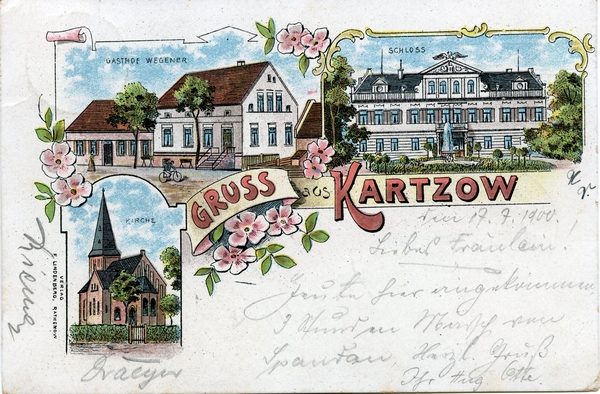 GASTHOF WEGENER
SCHLOSS
GRUSS
aus
KARTZOW
KIRCHE
VERLAG
LINDENBERG, RATHENOW
den 17. 7. 1900.
Liebes Fräulein!
Heute hier angekommen
3 Stunden Marsch von
Spandau. Herzl. Gruß
Ihr Aug. Otte.